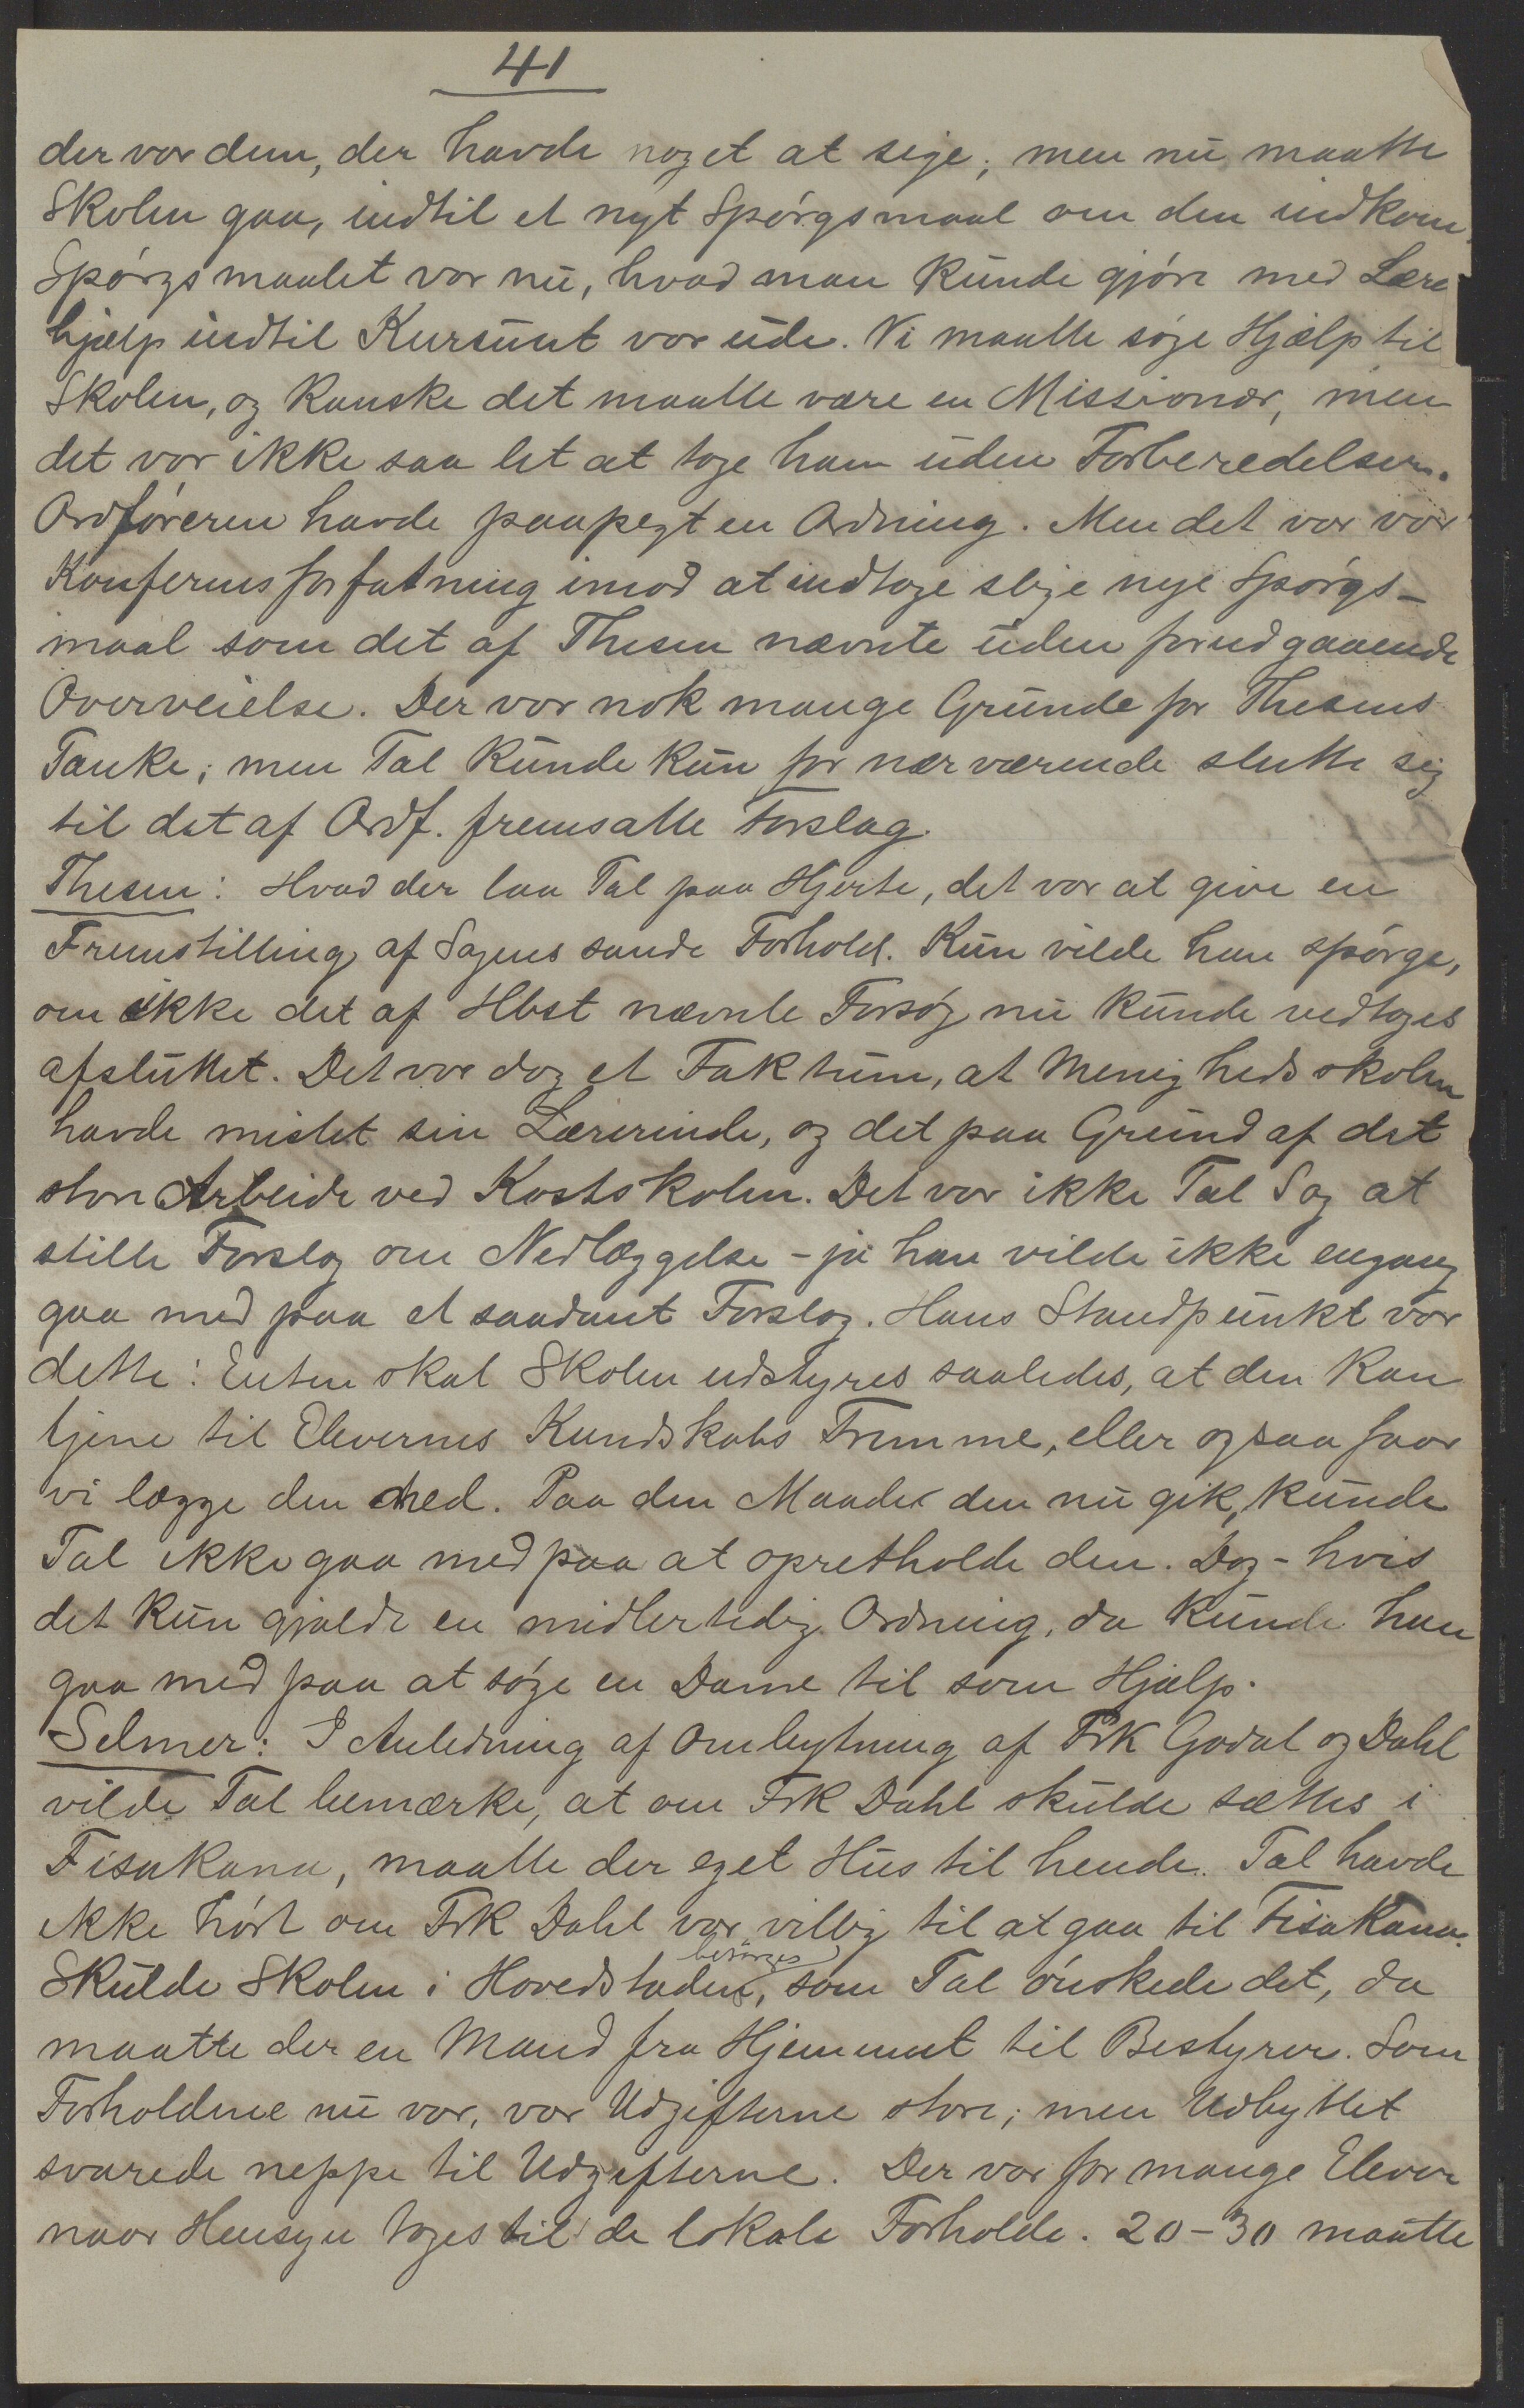 41
der var dem, der havde noget at sige; men nu maatte
Skolen gaa, indtil et nyt Spørgsmaal om den indkom.
Spørgsmaalet var nu, hvad man kunde gjøre med Lære
hjælp indtil Kurset var ude. Vi maatte søge Hjælp til
Skolen, og kanske det maatte være en Missionær, men
det var ikke saa let at tage ham uden Forberedelser.
Ordføreren havde paapegt en Ordning. Men det var vor
Konferensforfatning imod at indtage slige nye Spørgs-
maal som det af Thesen nævnte uden forudgaaende
Overveielse. Der var nok mange Grunde for Thesens
Tanke; men Tal kunde kun for nærværende slutte sig
til det af Ordf. fremsatte Forslag.
Thesen: Hvad der laa Tal paa Hjerte, det var at give en
Fremstilling af Sagens sande Forhold. Kun vilde han spørge,
om ikke det af Hbst nævnte Forsøg nu kunde vedtages
afsluttet. Det var dog et Faktum, at Menighedsskolen
havde mistet sin Lærerinde, og det paa Grund af det
store Arbeide ved Kostskolen. Det var ikke Tal Sag at
stille Forslag om Nedlæggelse - ja han vilde ikke engang
gaa med paa et saadant Forslag. Hans Standpunkt var
dette: Enten skal Skolen udstyres saaledes, at den kan
tjene til Elevernes Kundskabs Fremme, eller ogsaa faar
vi lægge den ned. Paa den Maade den nu gik, kunde
Tal ikke gaa med paa at opretholde den. Dog - hvis
det kun gjaldt en midlertidig Ordning, da kunde han
gaa med paa at søge en Dame til som Hjælp.
Selmer: I Anledning af Ombytning af Frk Godal og Dahl
vilde Tal bemærke, at om Frk Dahl skulde sættes i
Fisakana, maatte der eget Hus til hende. Tal havde
ikke hørt om Frk Dahl var villig til at gaa til Fisakana.
Skulde Skolen i Hovedstaden besørges, som Tal ønskede det, da
maatte der en Mand fra Hjemmet til Bestyrer. Som
Forholdene nu var, var Udgifterne store; men Udbyttet
svarede neppe til Udgifterne. Der var for mange Elever
naar Hensyn toges til de lokale Forholde. 20-30 maatte